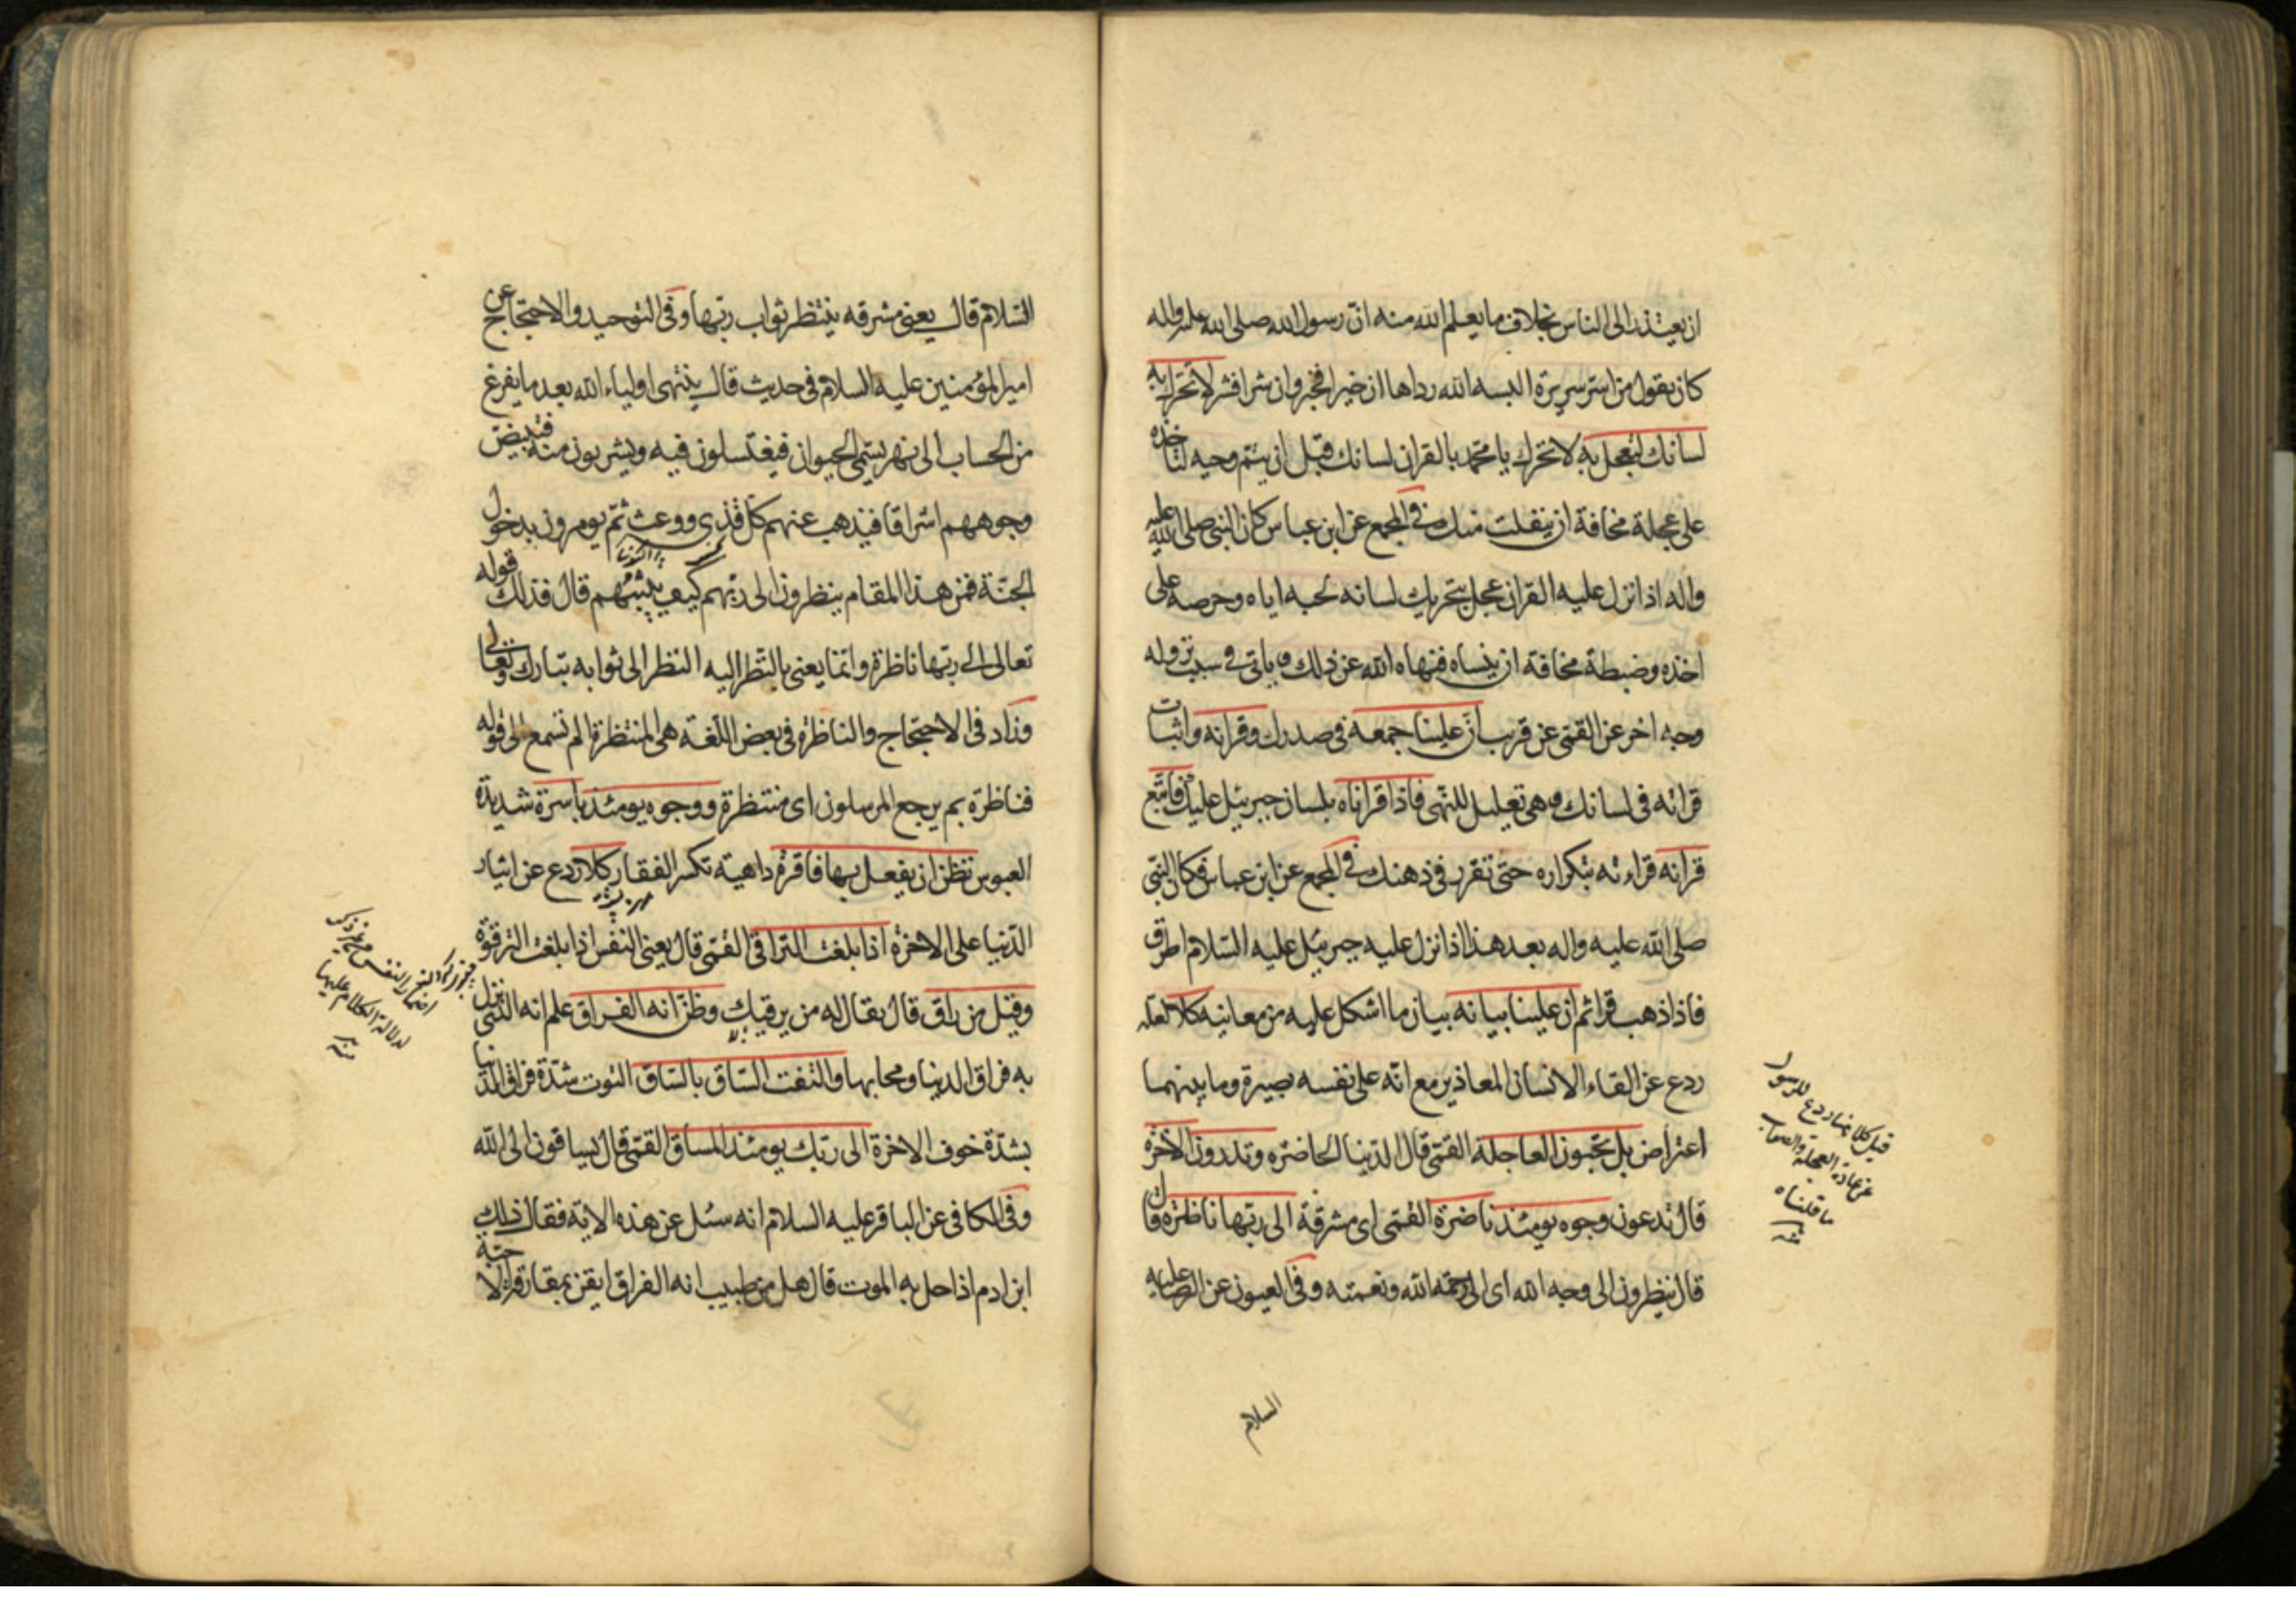 ان يعتذر الى الناس بخلاف ما يعلم الله منه ان رسول الله صلى الله عليه واله
كان يقول من استر سريرة البسه الله رداها ان خيرا فخير وان شرا فشر لا تحرك به
لسانك لتعجل به لا تحرك يا محمد بالقران لسانك قبل ان يتم وحيه لتاخذه
على عجلة مخافة ان ينفلت منك وفي المجمع عن ابن عباس كان النبي صلى الله عليه
واله اذا نزل عليه القران عجل بتحريك لسانه لحبه اياه وحرصه على
اخذه وضبطه مخافة ان ينساه فنهاه الله عن ذلك وياتى فى سبب نزوله
وجه اخر عن القمى عن قريب ان علينا جمعه فى صدرك وقرانه واثبات
قرائه فى لسانك وهى تعليل للنهى فاذا قراناه بلسان جبرئيل عليك فاتبع
قرانه قراءته بتكراره حتى تقرر فى ذهنك في المجمع عن ابن عباس فكان النبى
صلى الله عليه واله بعد هذا اذا نزل عليه جبرئيل عليه السلام اطرق
فاذا ذهب قرا ثم ان علينا بيانه بيان ما اشكل عليه من معانيه كلا لعله
ردع عن القاء الانسان المعاذير مع انه على نفسه بصيرة وما بينهما
اعتراض بل تحبون العاجلة القمى قال الدنيا الحاضره وتذرون الاخرة
قال تدعون وجوه يومئذ ناضرة القمى اى مشرقة الى ربها ناظرة قال
قال ينظرون الى وجه الله اى الى رحمة الله ونعمته وفى العيون عن الرضا عليه
السلام
قيل كلا هنا ردع للرسول
عن عادة العجلة والصواب
ما قلناه
منه
السلام قال يعنى مشرقه ينتظر ثواب ربها وفى التوحيد والاحتجاج عن
امير المؤمنين عليه السلام فى حديث قال ينتهى اولياء الله بعد ما يفرغ
من الحساب الى نهر يسمى الحيوان فيغتسلون فيه ويشربون منه فتبيض
وجوههم اشراقا فيذهب عنهم كل قذى ووعث ثم يومرون بدخول
الجنة فمن هذا المقام ينظرون الى ربهم كيف يثيبهم قال فذلك قوله
تعالى الى ربها ناظرة وانما يعنى بالنظر اليه النظر الى ثوابه تبارك وتعالى
وزاد فى الاحتجاج والناظرة فى بعض اللغة هى المنتظرة الم تسمع الى قوله
فناظرة بم يرجع المرسلون اى منتظرة ووجوه يومئذ باسرة شديدة
العبوس تظن ان يفعل بها فاقرة داهية تكسر الفقار كلا ردع عن ايثار
الدنيا على الاخرة اذا بلغت التراقى القمى قال يعنى النفس اذا بلغت الترقوة
وقيل من راق قال يقال له من يرقيك وظن انه الفراق علم انه الذى نزل
به فراق الدنيا ومحابها والتفت الساق بالساق التوت شدة فراق الدنيا
بشدة خوف الاخرة الى ربك يومئذ المساق القمى قال يساقون الى الله
وفى الكافى عن الباقر عليه السلام انه سئل عن هذه الاية فقال ذلك
ابن ادم اذا حل به الموت قال هل من طبيب انه الفراق ايقن بمفارقة الاحبة
اضمار النفس من غير ذكر
لدلالة الكلام عليها
منه